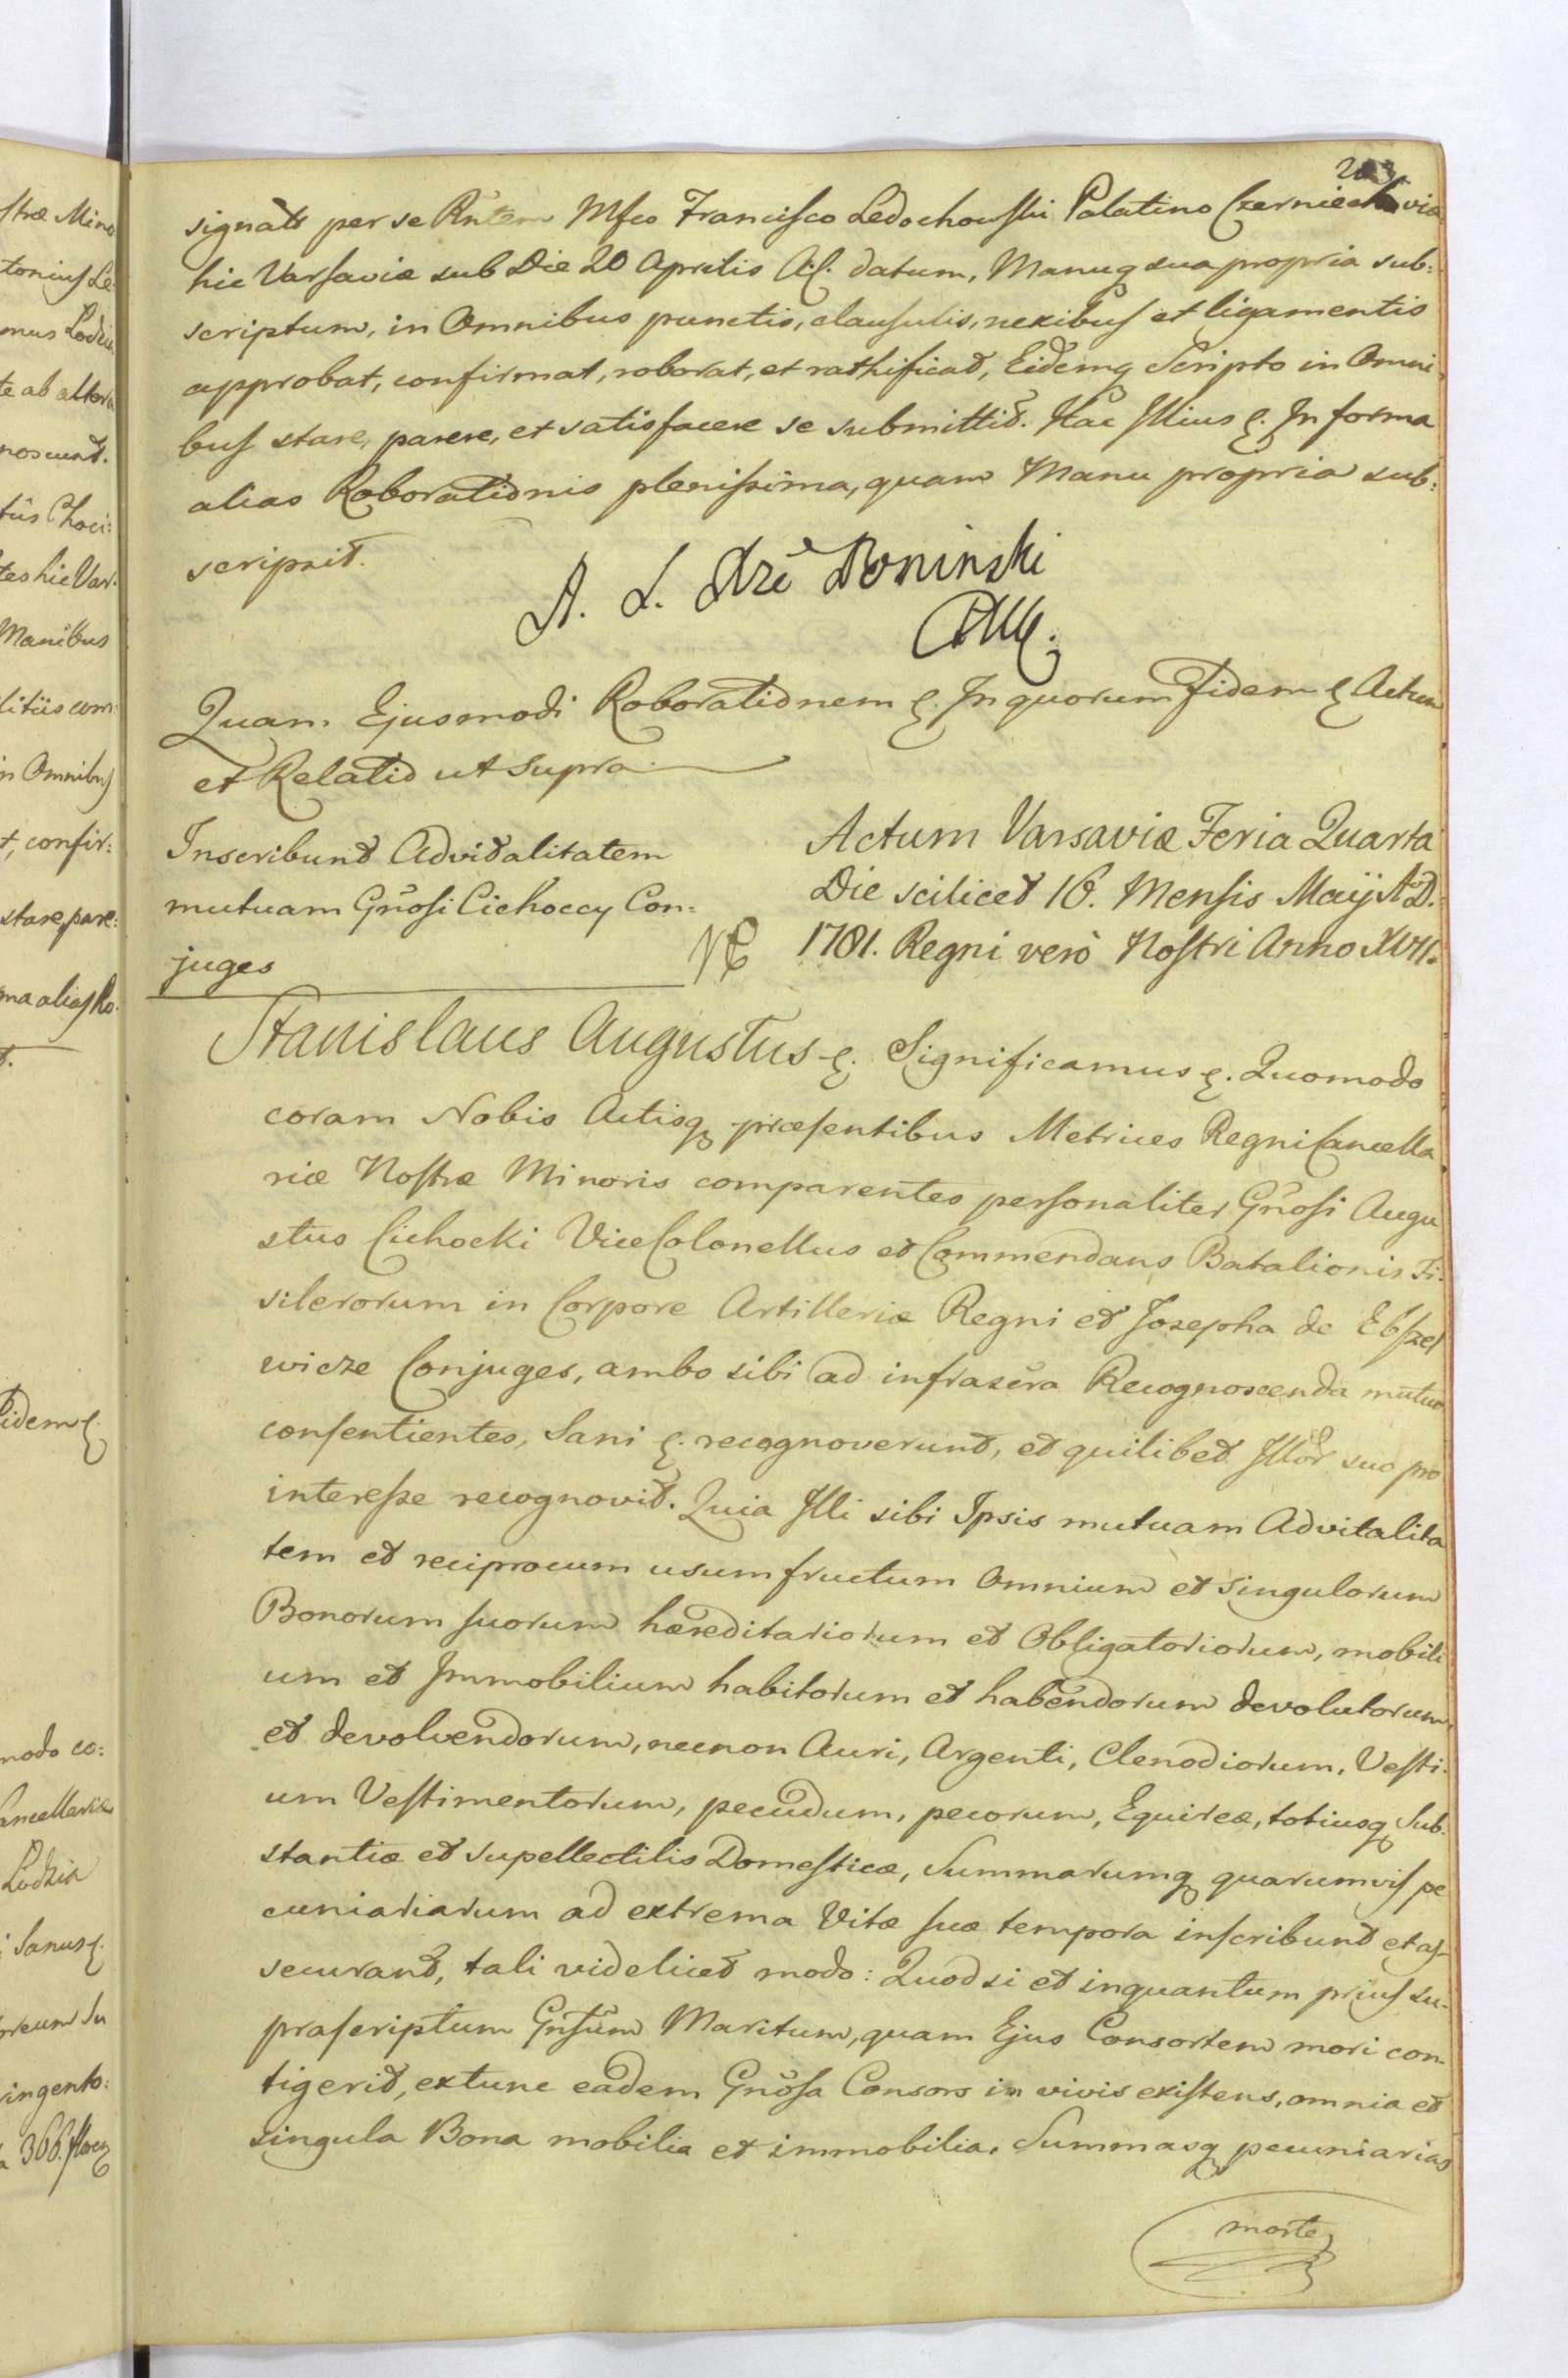 signats per se Rntem Mfco Francisco Ledochowski Palatino Czerniechoviæ
hic Varsaviæ sub Die 20 Aprilis A.C. datum, Manuq sua propria sub:
scriptum, in Omnibus punctis, clausulis, nexibus et ligamentis
approbat, confirmat, roborat, et rathificat, Eidemq Scripto in Omni
bus stare, parere, et satisfacere se submittit. Hac Illius ę. In forma
alias Roborationis plenissima, quam Manu propria sub:
scripsit.
A. L. Xże Poninski
Quam Ejusmodi Roborationem ę. In quorum Fidem ę Actum
et Relatio ut supra
Inscribunt Advitalitatem
mutuam Gnosi Cichoccy Con=
juges
Actum Varsaviæ Feria Quarta
Die scilicet 16. Mensis Maij A.D.
1781. Regni verò Nostri Anno XVII.
Stanislaus Augustus ę. Significamus ę. Quomodo
coram Nobis Actisq præsentibus Metrices Regni Cancella
riæ Nostræ Minoris comparentes personaliter Gnosi Augu
stus Cichocki ViceColonellus et Commendans Batalionis Fi:
silerorum in Corpore Artilleriæ Regni et Josepha de
wicze Conjuges, ambo sibi ad infrascra Recognoscenda mutuo
consentientes, Sani ę. recognoverunt, et quilibet Illor suo pro
interesse recognovit. Quia Illi sibi Ipsis mutuam Advitalita
tem et reciprocum usumfructum Omnium et singulorum
Bonorum suorum hæreditariorum et Obligatoriorum, mobili
um et Immobilium habitorum et habendorum devolutorum
et devolvendorum, necnon Auri, Argenti, Clenodiorum, Vesti:
um Vestimentorum, pecudum, pecorum, Equireæ, totiusq Sub:
stantiæ et supellectilis Domesticæ, Summarumq quarumvis pe
cuniariarum ad extrema Vitæ suæ tempora inscribunt et as-
securant, tali videlicet modo: Quod si et inquantum prius su-
prascriptum Gnsum Maritum, quam Ejus Consortem mori con-
tigerit, extunc eadem Gnosa Consors in vivis existens, omnia et
singula Bona mobilia et immobilia, Summasq pecuniarias
morte